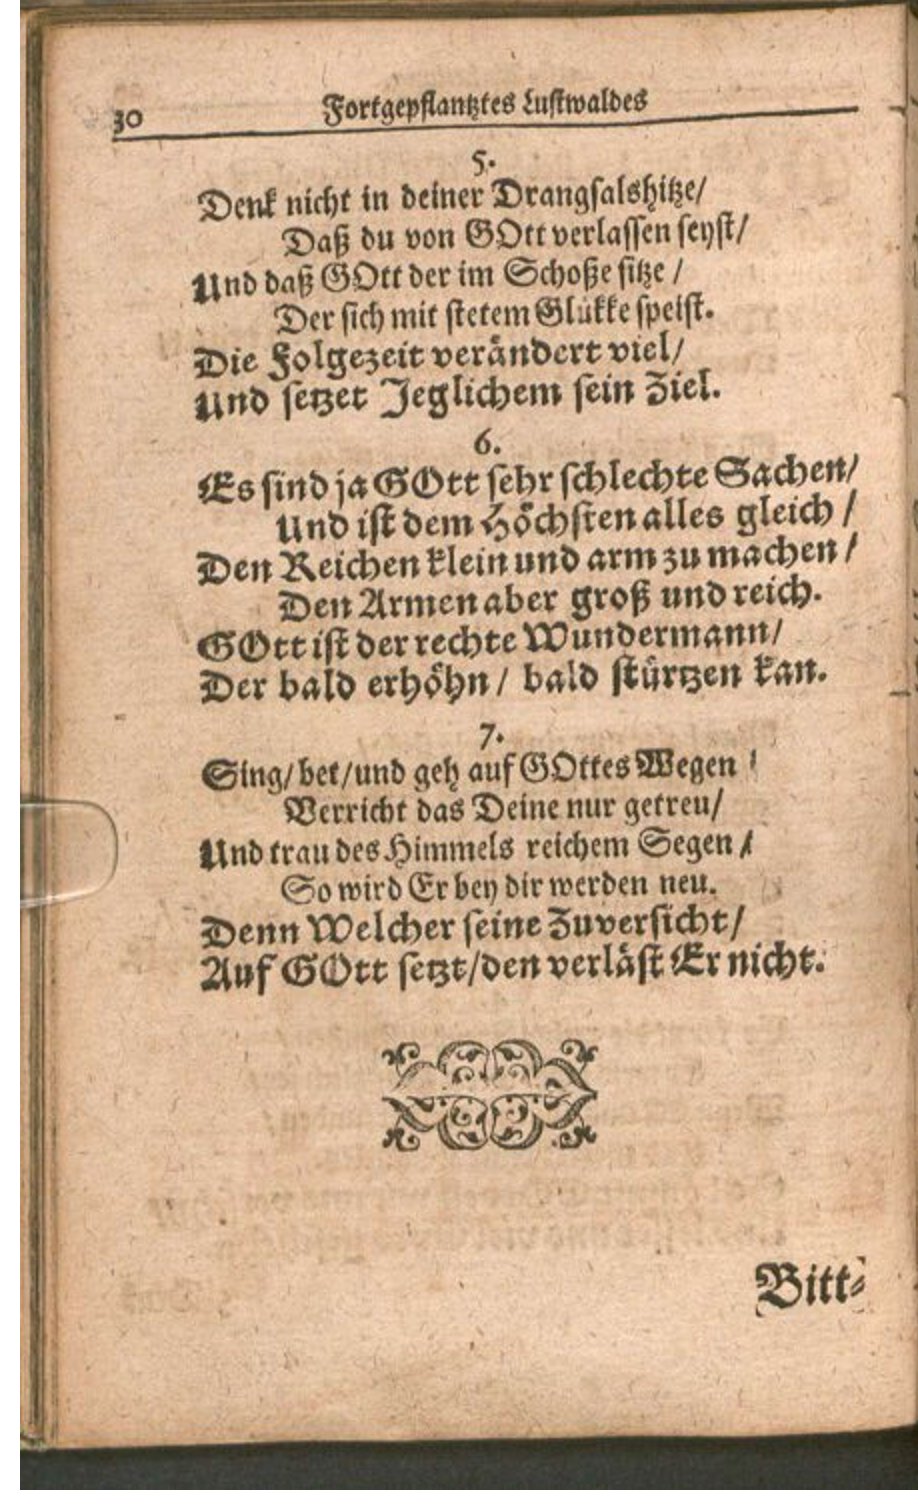 30
Fortgepflantztes Lustwaldes
5.
Denk nicht in deiner Drangsalshitze/
Daß du von GOtt verlassen seyst/
Und daß GOtt der im Schoße sitze /
Der sich mit stetem Glükke speist.
Die Folgezeit verändert viel/
Und setzet Jeglichem sein Ziel.
6.
Es sind ja GOtt sehr schlechte Sachen/
Und ist dem Höchsten alles gleich /
Den Reichen klein und arm zu machen /
Den Armen aber groß und reich.
GOtt ist der rechte Wundermann/
Der bald erhöhn / bald stürtzen kan.
7.
Sing/ bet/und geh auf GOttes Wegen /
Verricht das Deine nur getreu/
Und trau des Himmels reichem Segen /
So wird Er bey dir werden neu.
Denn Welcher seine Zuversicht/
Auf GOtt setzt/den verläst Er nicht.
Bitt-